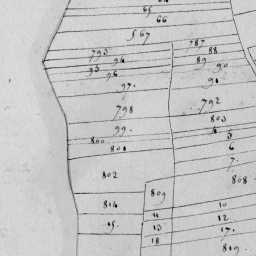 65
66
567
787
793 88
94 89 90
95
96
97. 91
798 792
803
99. 4
5
800
801 6
7.
802 808
809
814 10
11 12
15. 13 17.
18 819.